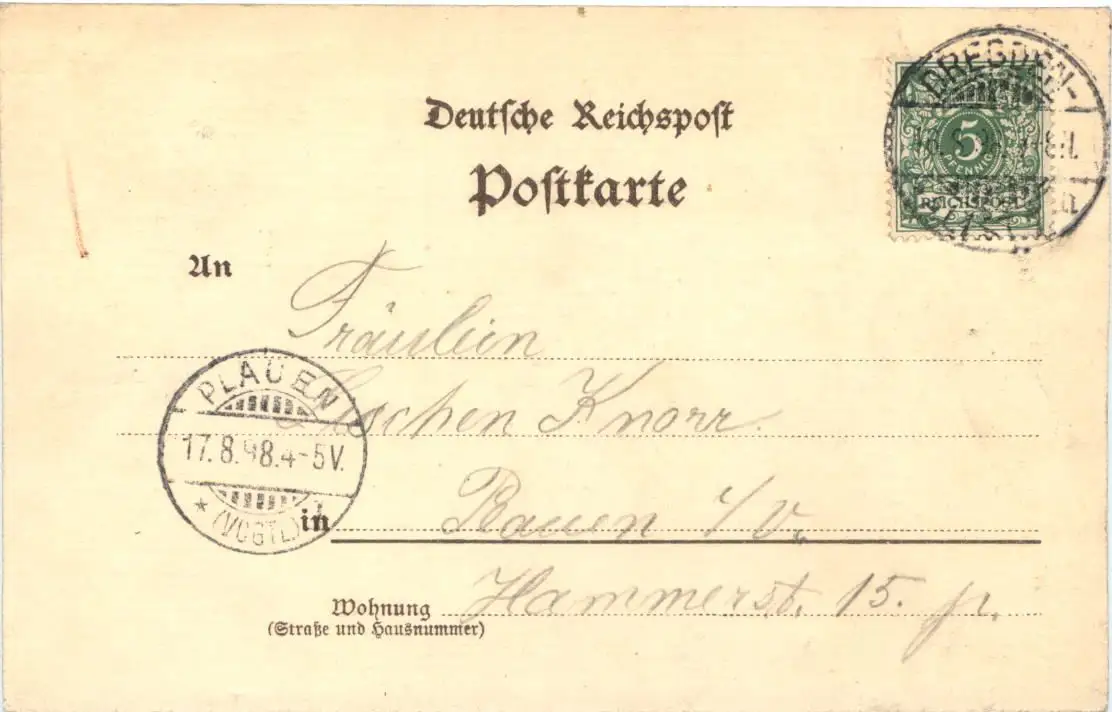 Deutsche Reichspost
Postkarte
DRESDEN-
5
PFENNIG
REICHSPOST
An
Fräulein
Knorr.
PLAUEN
17.8.98.4-5V.
* (VOGTL.)
in
Plauen i/V.
Hammerst. 15. p.
Wohnung
(Straße und Hausnummer)